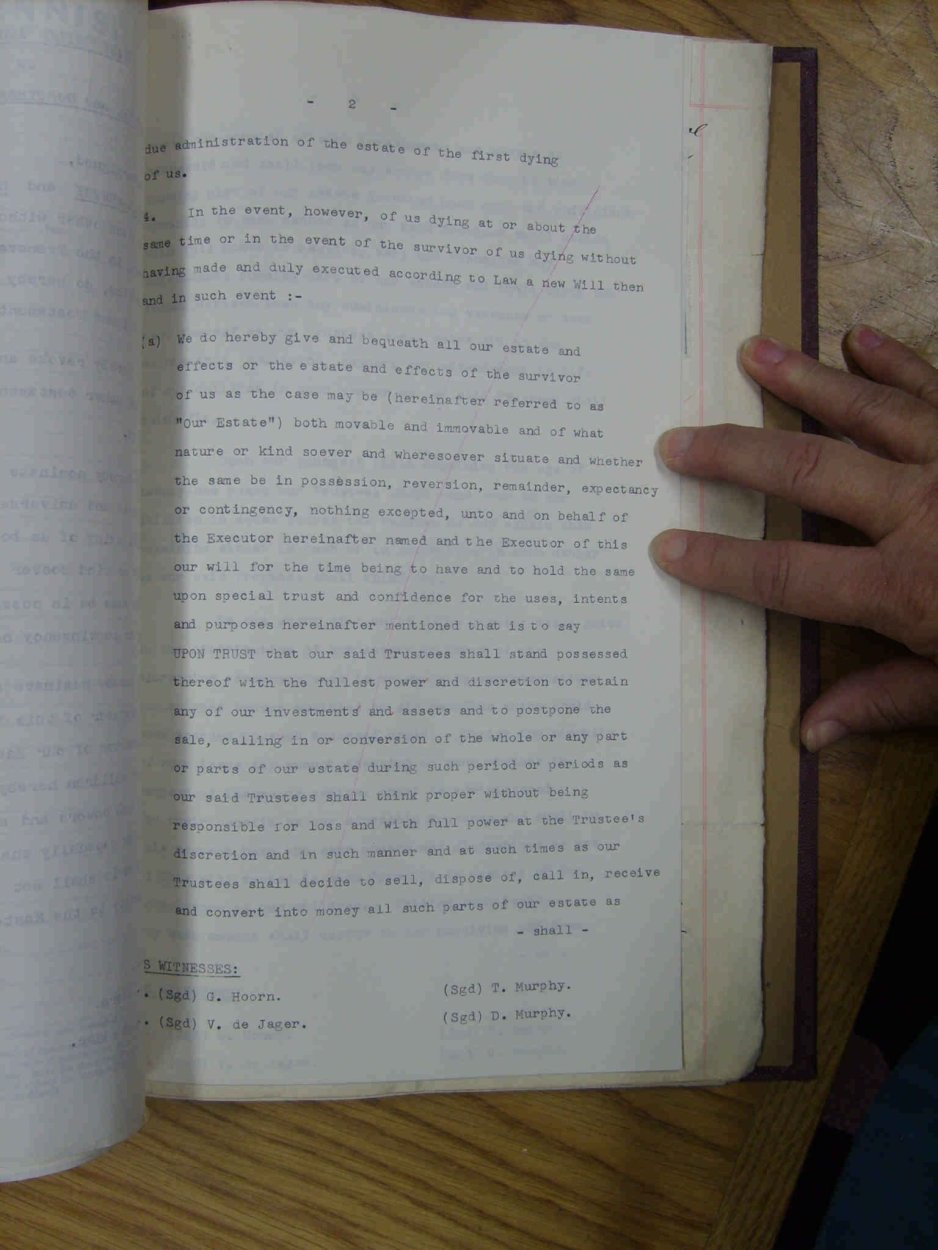 - 2 -
due administration of the estate of the first dying
of us.
4. In the event, however, of us dying at or about the
same time or in the event of the survivor of us dying without
having made and duly executed according to Law a new Will then
and in such event :-
(a) We do hereby give and bequeath all our estate and
effects or the estate and effects of the survivor
of us as the case may be (hereinafter referred to as
"Our Estate") both movable and immovable and of what
nature or kind soever and wheresoever situate and whether
the same be in possession, reversion, remainder, expectancy
or contingency, nothing excepted, unto and on behalf of
the Executor hereinafter named and the Executor of this
our will for the time being to have and to hold the same
upon special trust and confidence for the uses, intents
and purposes hereinafter mentioned that is to say
UPON TRUST that our said Trustees shall stand possessed
thereof with the fullest power and discretion to retain
any of our investments and assets and to postpone the
sale, calling in or conversion of the whole or any part
or parts of our estate during such period or periods as
our said Trustees shall think proper without being
responsible for loss and with full power at the Trustee's
discretion and in such manner and at such times as our
Trustees shall decide to sell, dispose of, call in, receive
and convert into money all such parts of our estate as
- shall -
S WITNESSES:
(Sgd) G. Hoorn. (Sgd) T. Murphy.
(Sgd) V. de Jager. (Sgd) D. Murphy.